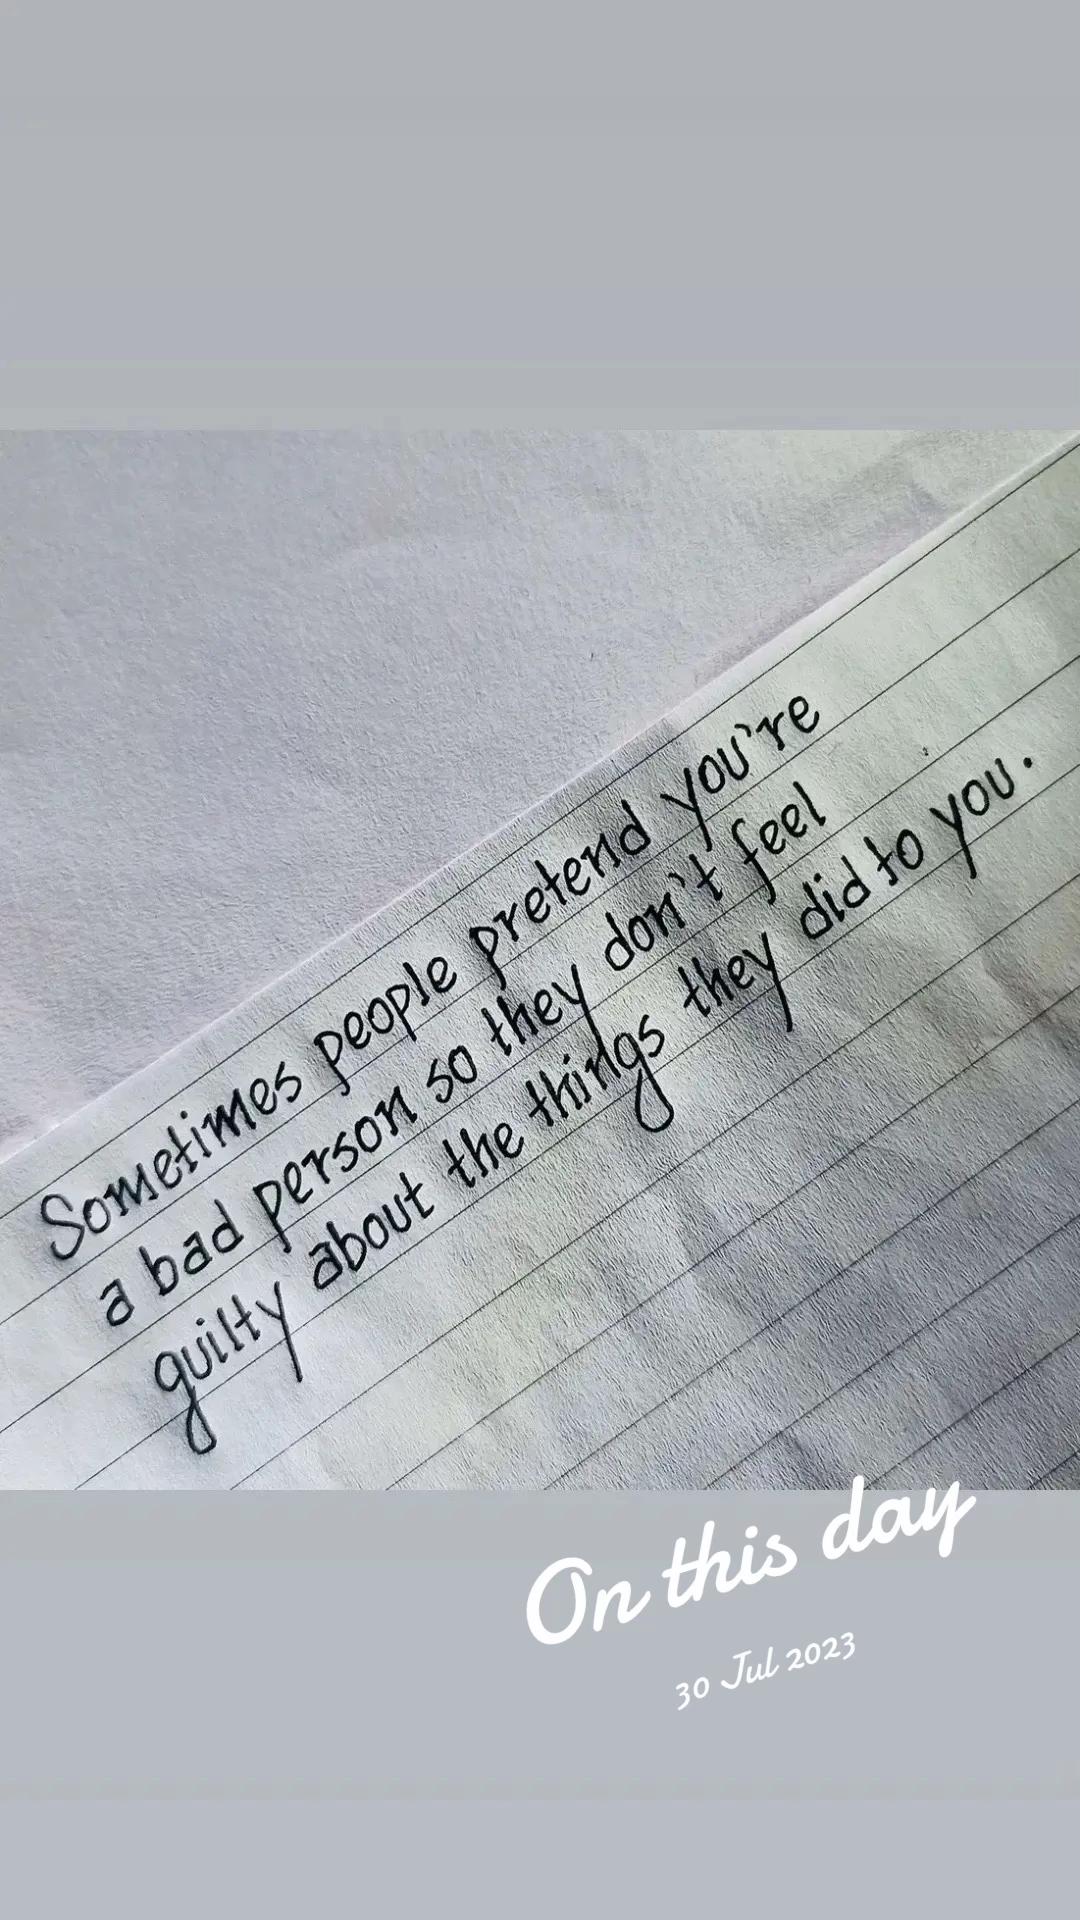 Sometimes people pretend you're
a bad person so they don't feel
guilty about the things they did to you.
On this day
30 Jul 2023